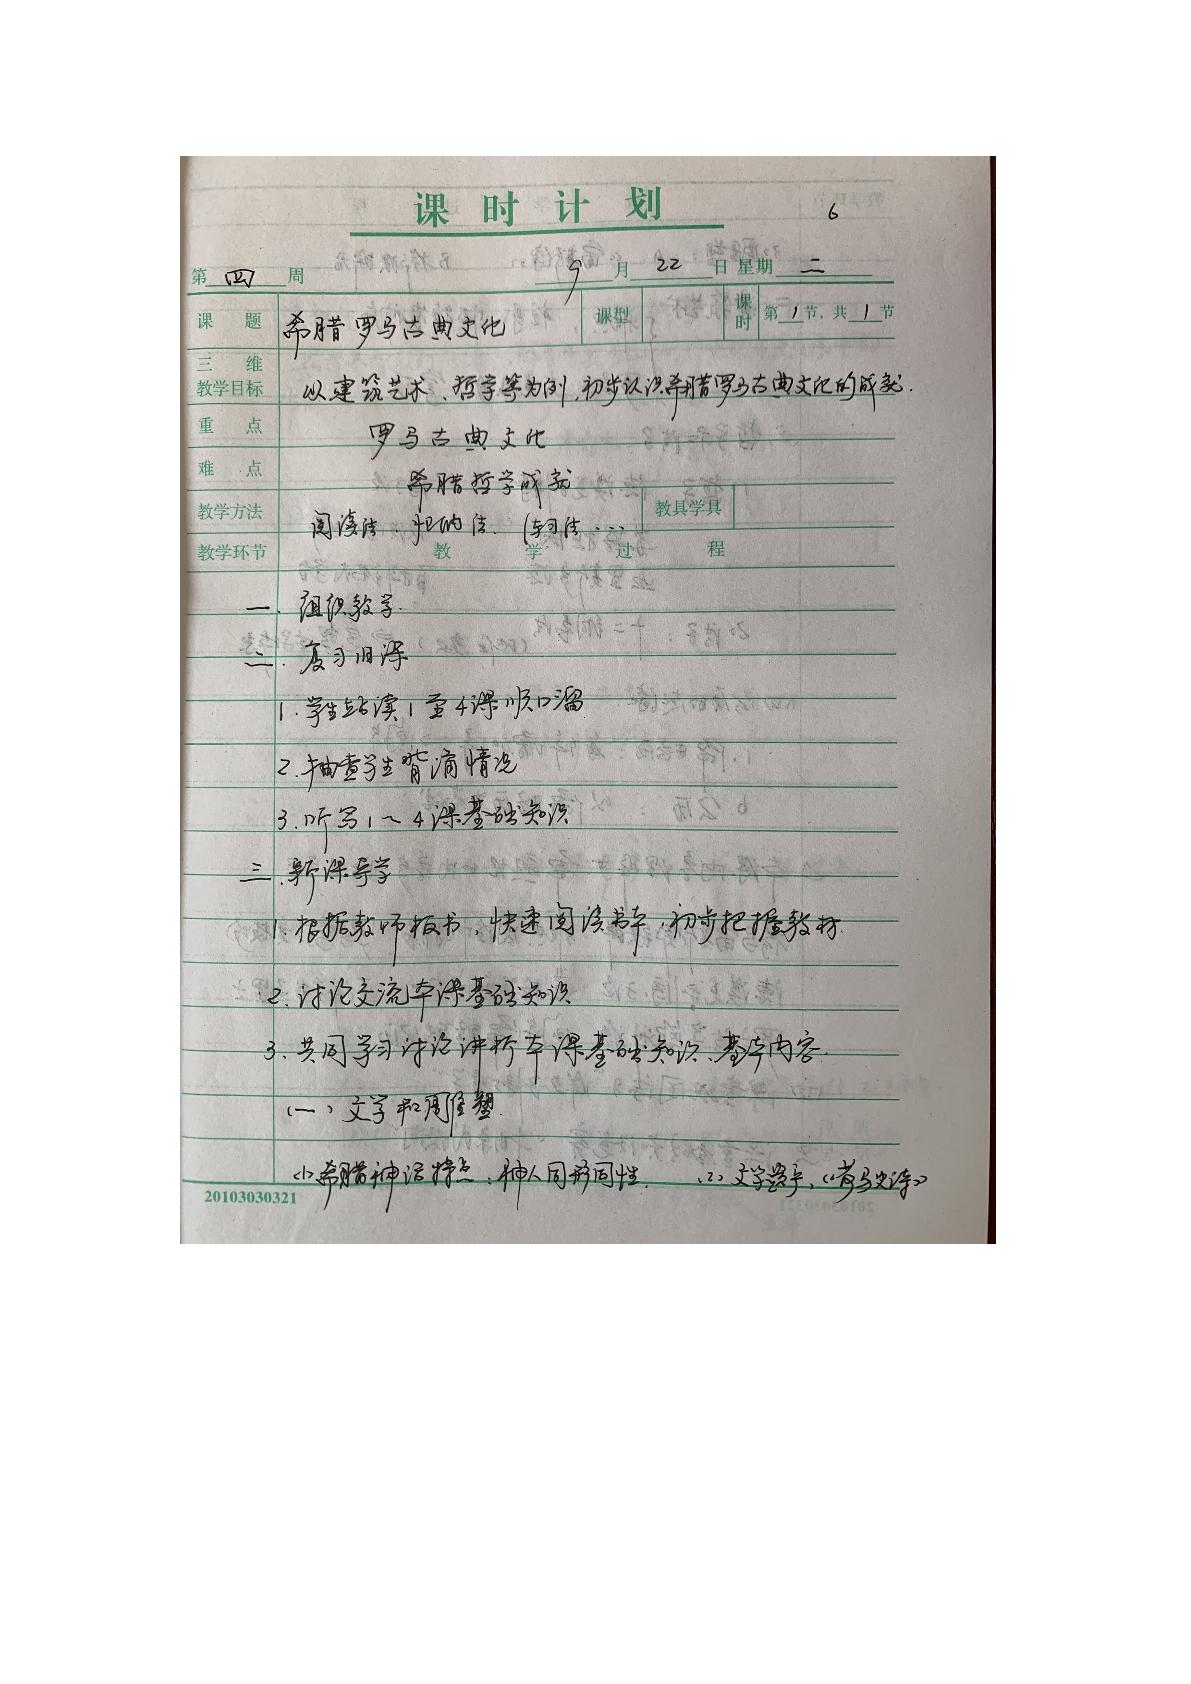 课时计划
6
第四周 9月22日 星期二
课题 希腊罗马古典文化 课型 课时 第1节,共1节
三维教学目标 以建筑艺术、哲学等为例,初步认识希腊罗马古典文化的成就.
重点 罗马古典文化
难点 希腊哲学成就
教学方法 阅读法、归纳法、练习法... 教具学具
教学环节 教学过程
一. 组织教学.
二. 复习旧课
1. 学生站读1至4课顺口溜
2. 抽查学生背诵情况
3. 听写1~4课基础知识
三. 新课导学
1. 根据教师板书,快速阅读书本,初步把握教材.
2. 讨论交流本课基础知识
3. 共同学习讨论讲析本课基础知识、基本内容.
(一) 文学和雕塑.
(1) 希腊神话特点:神人同形同性. (2) 文学 《荷马史诗》
20103030321